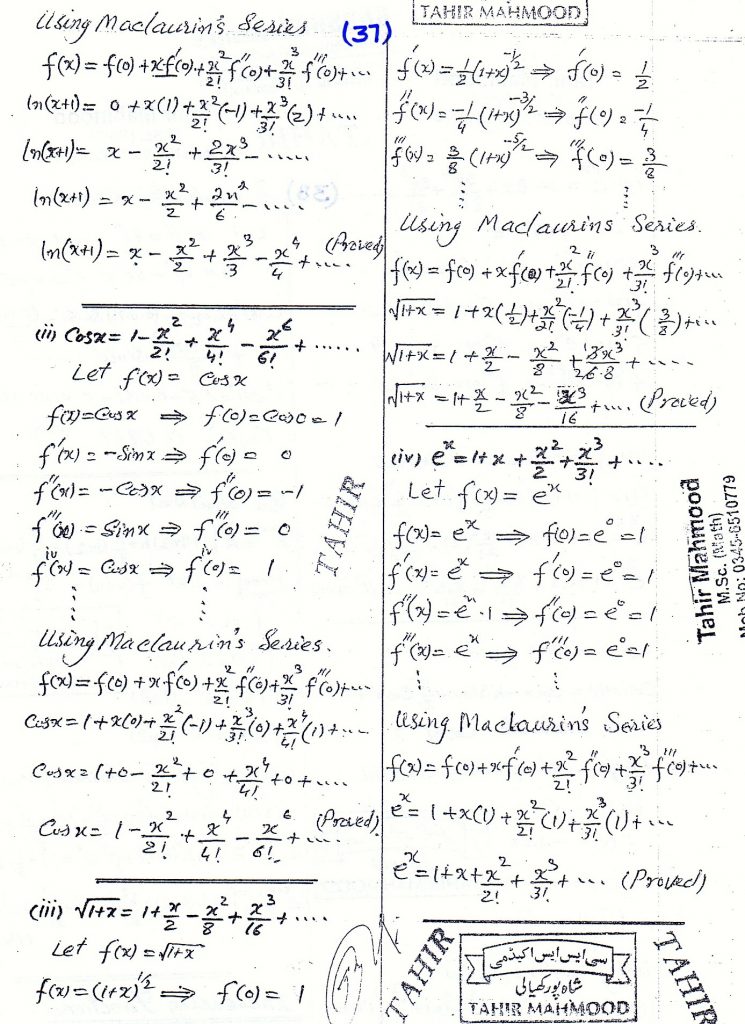 TAHIR MAHMOOD
(37)
Using Maclaurin's Series
f(x) = f(0) + xf'(0) + x²/2! f''(0) + x³/3! f'''(0) + ...
ln(x+1) = 0 + x(1) + x²/2! (-1) + x³/3! (2) + ....
ln(x+1) = x - x²/2! + 2x³/3! - .....
ln(x+1) = x - x²/2 + 2x²/6 - .....
ln(x+1) = x - x²/2 + x³/3 - x⁴/4 + .... (Proved)
(ii) Cosx = 1 - x²/2! + x⁴/4! - x⁶/6! + ......
Let f(x) = Cosx
f(x) = Cosx ⇒ f(0) = Cos0 = 1
f'(x) = -Sinx ⇒ f'(0) = 0
f''(x) = -Cosx ⇒ f''(0) = -1
f'''(x) = Sinx ⇒ f'''(0) = 0
fⁱᵛ(x) = Cosx ⇒ fⁱᵛ(0) = 1
⋮ ⋮
Using Maclaurin's Series.
f(x) = f(0) + xf'(0) + x²/2! f''(0) + x³/3! f'''(0) + ...
Cosx = 1 + x(0) + x²/2! (-1) + x³/3! (0) + x⁴/4! (1) + ...
Cosx = 1 + 0 - x²/2! + 0 + x⁴/4! + 0 + ....
Cosx = 1 - x²/2! + x⁴/4! - x⁶/6! + .... (Proved)
(iii) √1+x = 1 + x/2 - x²/8 + x³/16 + ....
Let f(x) = √1+x
f(x) = (1+x)^1/2 ⇒ f(0) = 1
f'(x) = 1/2 (1+x)^-1/2 ⇒ f'(0) = 1/2
f''(x) = -1/4 (1+x)^-3/2 ⇒ f''(0) = -1/4
f'''(x) = 3/8 (1+x)^-5/2 ⇒ f'''(0) = 3/8
⋮ ⋮
Using Maclaurins Series.
f(x) = f(0) + xf'(0) + x²/2! f''(0) + x³/3! f'''(0) + ...
√1+x = 1 + x(1/2) + x²/2! (-1/4) + x³/3! (3/8) + ...
√1+x = 1 + x/2 - x²/8 + 3x³/6·8 + ....
√1+x = 1 + x/2 - x²/8 - x³/16 + .... (Proved)
(iv) eˣ = 1 + x + x²/2 + x³/3! + ....
Let f(x) = eˣ
f(x) = eˣ ⇒ f(0) = e⁰ = 1
f'(x) = eˣ ⇒ f'(0) = e⁰ = 1
f''(x) = eˣ·1 ⇒ f''(0) = e⁰ = 1
f'''(x) = eˣ ⇒ f'''(0) = e⁰ = 1
⋮ ⋮
Using Maclaurin's Series
f(x) = f(0) + xf'(0) + x²/2! f''(0) + x³/3! f'''(0) + ...
eˣ = 1 + x(1) + x²/2! (1) + x³/3! (1) + ...
eˣ = 1 + x + x²/2! + x³/3! + ... (Proved)
TAHIR
Tahir Mahmood
M.Sc. (Math)
Mob No: 0345-6510779
TAHIR
سی ایس ایس اکیڈمی
شاہ پور کھیالی
TAHIR MAHMOOD
TAHIR